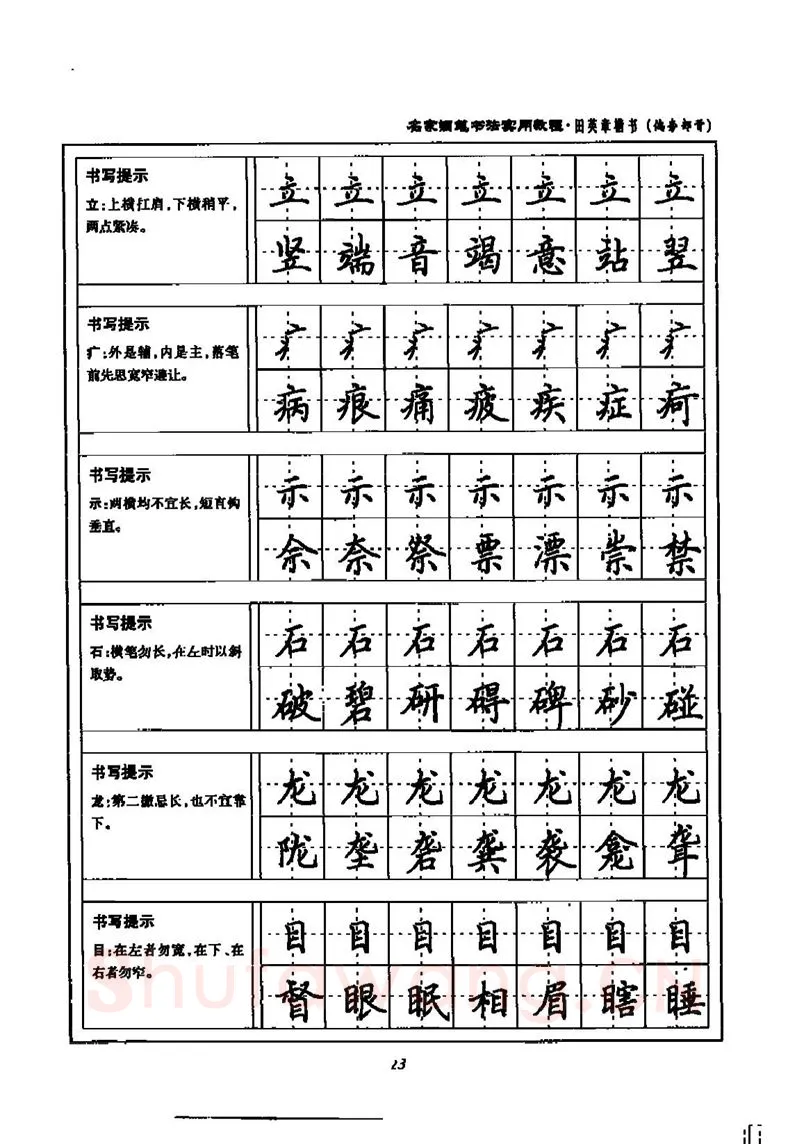 名家钢笔书法实用教程·田英章楷书(偏旁部首)
书写提示
立:上横扛肩,下横稍平,
两点紧凑。
立立立立立立立
竖端音竭意站翌
书写提示
疒:外是辅,内是主,落笔
前先思宽窄避让。
疒疒疒疒疒疒疒
病痕痛疲疾症疴
书写提示
示:两横均不宜长,短直钩
垂直。
示示示示示示示
佘奈祭票漂崇禁
书写提示
石:横笔勿长,在左时以斜
取势。
石石石石石石石
破碧研碍碑砂碰
书写提示
龙:第二撇忌长,也不宜靠
下。
龙龙龙龙龙龙龙
陇垄砻龚袭龛聋
书写提示
目:在左者勿宽,在下、在
右者勿窄。
目目目目目目目
督眼眠相眉瞎睡
Shufawang.CN
23